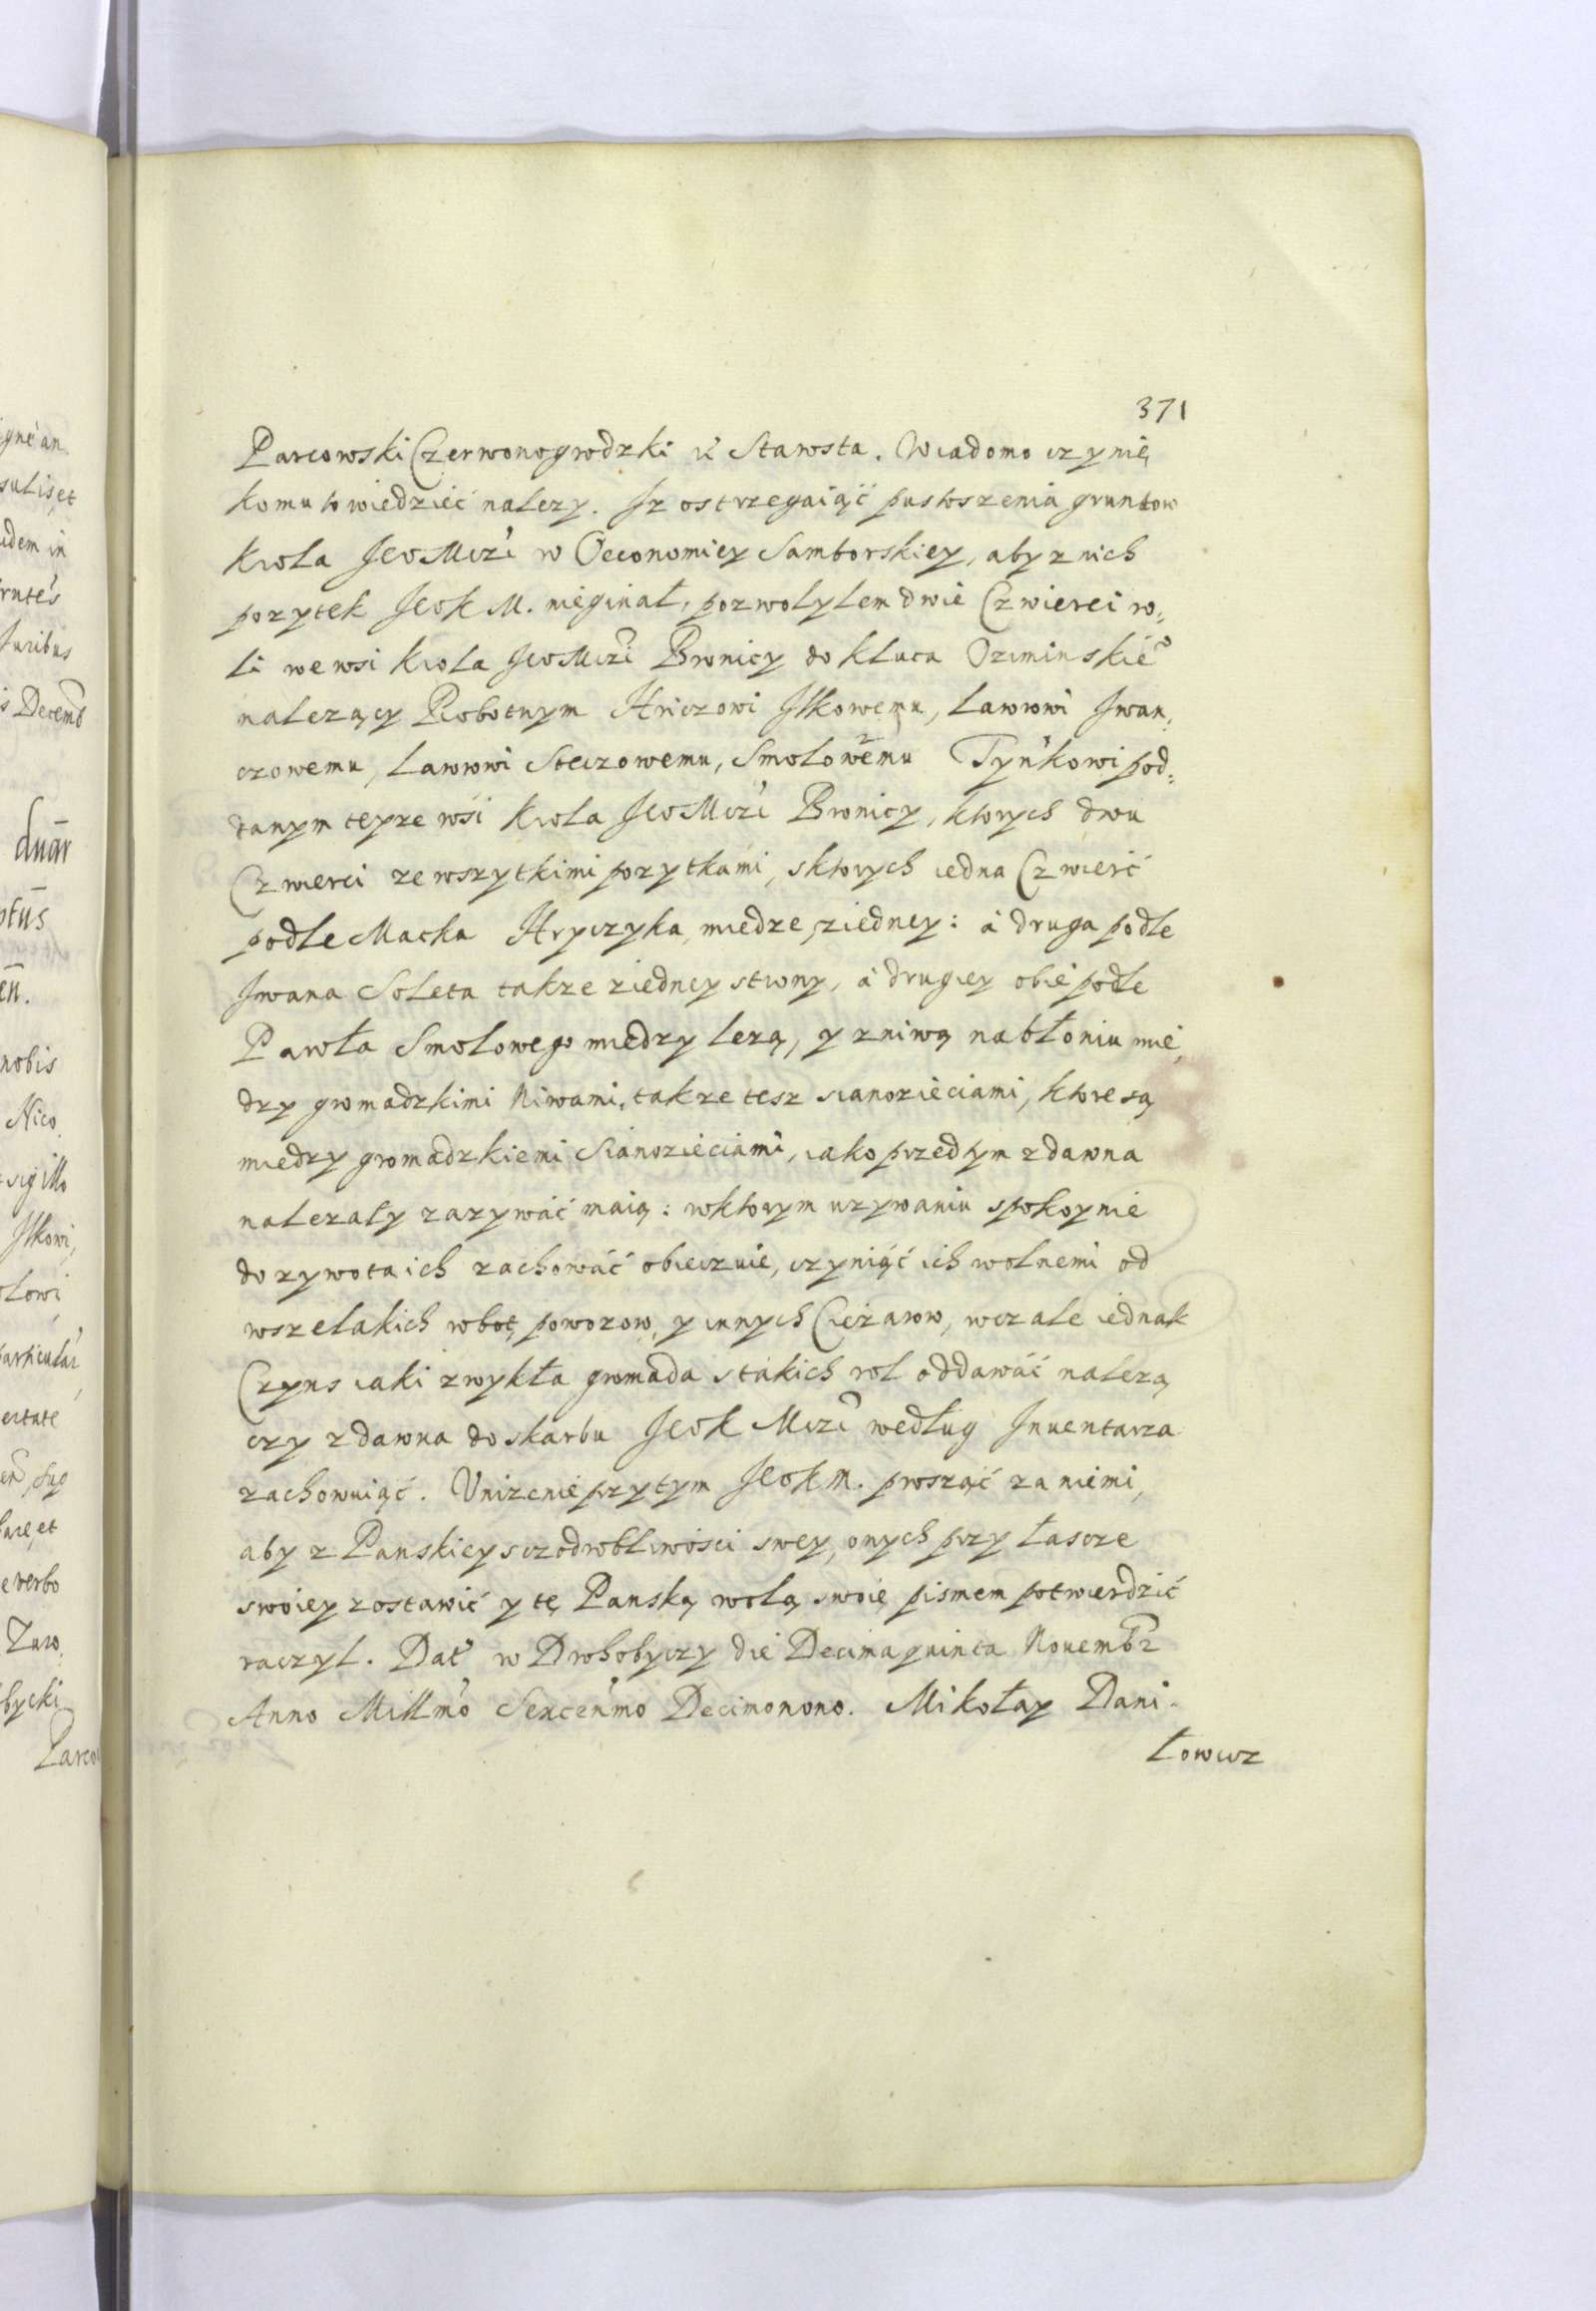 371
Parcowski Czerwonogrodzki &c Starosta. Wiadomo czynię
komu to wiedzieć nalezy. Iz ostrzegaiąć pustoszenia gruntow
Krola JeoMczi w Oeconomiey Samborskiey, aby z nich
pozytek JeoK M. nieginał, pozwolylem dwie Czwierci ro,
li we wsi Krola JeoMczi Bronicy do Klucza Oziminskie°
nalezący Robotnym Hriczowi Ilkowemu, Lawrowi Iwan,
czowemu, Lawrowi Steczowemu, Smolowemu Tyńkowi pod,
danym teyze wsi Krola JeoMczi Bronicy, ktorych dwu
Czwierci ze wszytkimi pozytkami, s ktorych iedna Czwierć
podle Macka Hryczyka, miedze ziedney: á druga podle
Iwana Soleta takze ziedney strony, á drugiey obie podle
Pawła Smolowego miedzy lezą, y z niwą na błoniu mie,
dzy gromadzkimi Niwami, takze tesz sianozieciami, ktore są
miedzy gromadzkiemi Sianozieciami, iako przedtym zdawna
nalezały zazywać maią: w ktorym uzywaniu spokoynie
do zywota ich zachować obiecuie, czyniąć ich wolnemi od
wszelakich robot, powozow, y innych Cięzarow, wcale iednak
Czyns iaki zwykła gromada s takich rol oddawać nalezą
czy zdawna do skarbu JeoK Mczi według Inuentarza
zachowuiąć. Unizenie przytym JeoKM. prosząć za niemi,
aby z Panskiey sczodrobliwosci swey, onych przy łascze
swoiey zostawić y tę Panską wolą swoię pismem potwierdzić
raczyl. Dat w Drohobyczy die Decima quinta Nouembr
Anno Millmo Sexcenmo Decimonono. Mikołay Dani.
łowicz